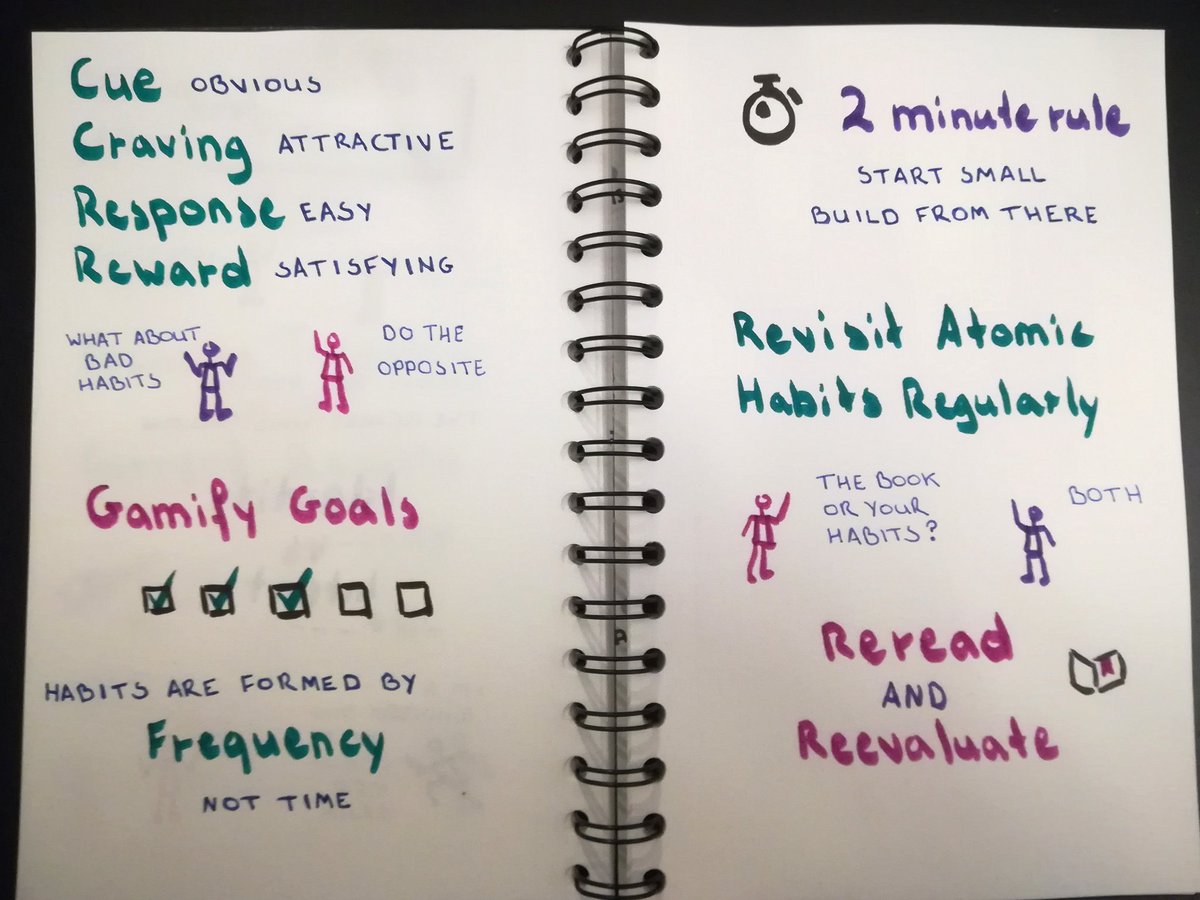 Cue OBVIOUS
Craving ATTRACTIVE
Response EASY
Reward SATISFYING
WHAT ABOUT
BAD
HABITS
DO THE
OPPOSITE
Gamify Goals
HABITS ARE FORMED BY
Frequency
NOT TIME
2 minute rule
START SMALL
BUILD FROM THERE
Revisit Atomic
Habits Regularly
THE BOOK
OR YOUR
HABITS?
BOTH
Reread
AND
Reevaluate